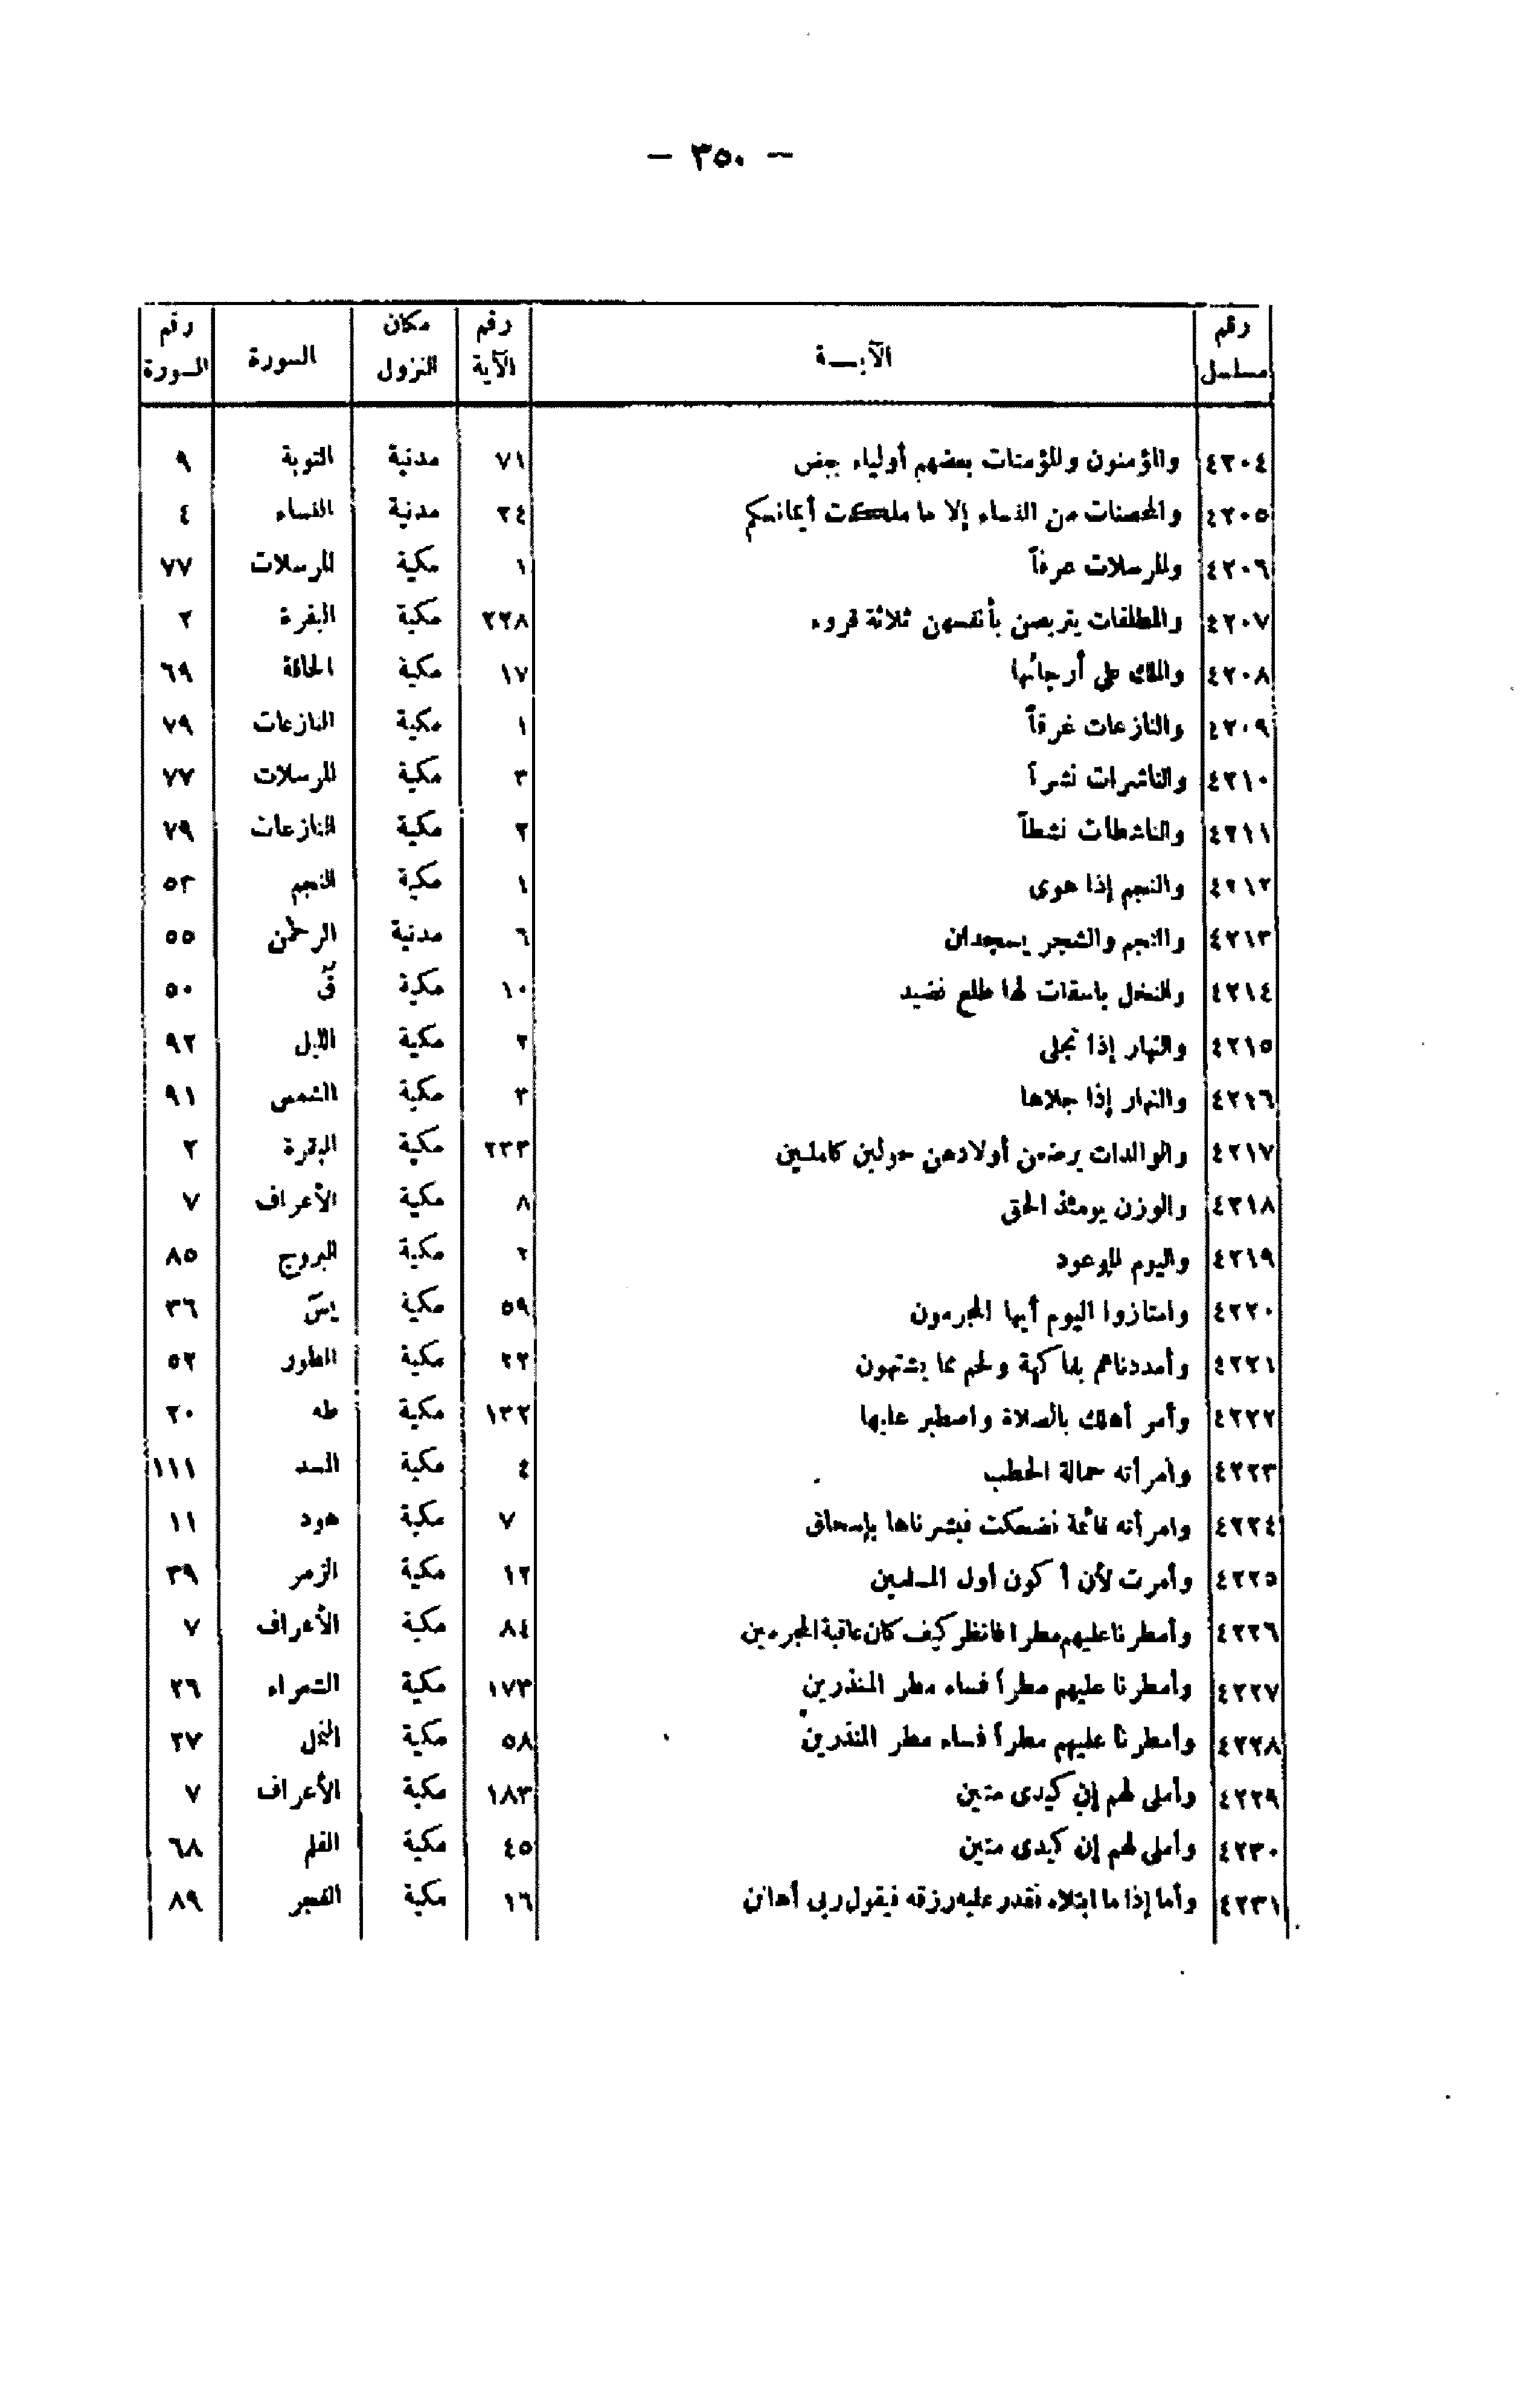 — ٣٥٠ —
رقم مسلسل | الآيـــة | رقم الآية | مكان النزول | السورة | رقم السورة
٤٢٠٤ | والمؤمنون والمؤمنات بعضهم أولياء بعض | ٧١ | مدنية | التوبة | ٩
٤٢٠٥ | والمحصنات من النساء إلا ما ملكت أيمانكم | ٢٤ | مدنية | النساء | ٤
٤٢٠٦ | والمرسلات عرفاً | ١ | مكية | المرسلات | ٧٧
٤٢٠٧ | والمطلقات يتربصن بأنفسهن ثلاثة قروء | ٢٢٨ | مكية | البقرة | ٢
٤٢٠٨ | والملك على أرجائها | ١٧ | مكية | الحاقة | ٦٩
٤٢٠٩ | والنازعات غرقاً | ١ | مكية | النازعات | ٧٩
٤٢١٠ | والناشرات نشراً | ٣ | مكية | المرسلات | ٧٧
٤٢١١ | والناشطات نشطاً | ٢ | مكية | النازعات | ٧٩
٤٢١٢ | والنجم إذا هوى | ١ | مكية | النجم | ٥٣
٤٢١٣ | والنجم والشجر يسجدان | ٦ | مدنية | الرحمن | ٥٥
٤٢١٤ | والنخل باسقات لها طلع نضيد | ١٠ | مكية | قٓ | ٥٠
٤٢١٥ | والنهار إذا تجلى | ٢ | مكية | الليل | ٩٢
٤٢١٦ | والنهار إذا جلاها | ٣ | مكية | الشمس | ٩١
٤٢١٧ | والوالدات يرضعن أولادهن حولين كاملين | ٢٣٣ | مكية | البقرة | ٢
٤٢١٨ | والوزن يومئذ الحق | ٨ | مكية | الأعراف | ٧
٤٢١٩ | واليوم الموعود | ٢ | مكية | البروج | ٨٥
٤٢٢٠ | وامتازوا اليوم أيها المجرمون | ٥٩ | مكية | يسٓ | ٣٦
٤٢٢١ | وأمددناهم بفاكهة ولحم مما يشتهون | ٢٢ | مكية | الطور | ٥٢
٤٢٢٢ | وأمر أهلك بالصلاة واصطبر عليها | ١٣٢ | مكية | طه | ٢٠
٤٢٢٣ | وأمرأته حمالة الحطب | ٤ | مكية | المسد | ١١١
٤٢٢٤ | وامرأته قائمة فضحكت فبشرناها بإسحاق | ٧ | مكية | هود | ١١
٤٢٢٥ | وأمرت لأن أكون أول المسلمين | ١٢ | مكية | الزمر | ٣٩
٤٢٢٦ | وأمطرنا عليهم مطرا فانظر كيف كان عاقبة المجرمين | ٨٤ | مكية | الأعراف | ٧
٤٢٢٧ | وأمطرنا عليهم مطراً فساء مطر المنذرين | ١٧٣ | مكية | الشعراء | ٢٦
٤٢٢٨ | وأمطرنا عليهم مطراً فساء مطر المنذرين | ٥٨ | مكية | النمل | ٢٧
٤٢٢٩ | وأملى لهم إن كيدى متين | ١٨٣ | مكية | الأعراف | ٧
٤٢٣٠ | وأملى لهم إن كيدى متين | ٤٥ | مكية | القلم | ٦٨
٤٢٣١ | وأما إذا ما ابتلاه فقدر عليه رزقه فيقول ربى أهانن | ١٦ | مكية | الفجر | ٨٩